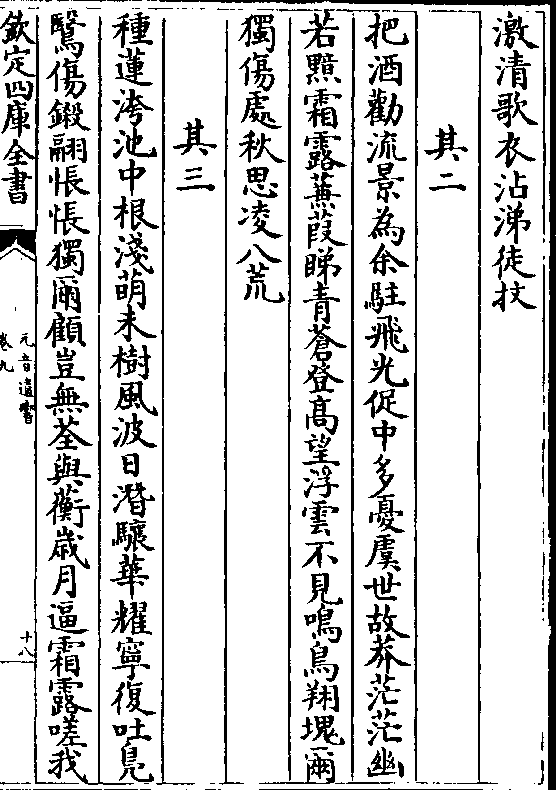 激清歌衣沾涕徒抆
其二
把酒勸流景為余駐飛光促中多憂虞世故莽茫茫幽
若黰霜露蕪葭睇青蒼登髙望浮雲不見鳴鳥翔塊爾
獨傷處秋思凌八荒
其三
種蓮洿池中根淺萌未樹風波日潛驤華耀寧復吐鳧
鷖傷鎩翮悵悵獨爾顧豈無荃與蘅歲月逼霜露嗟我
欽定四庫全書
元音遺響
卷九
十八